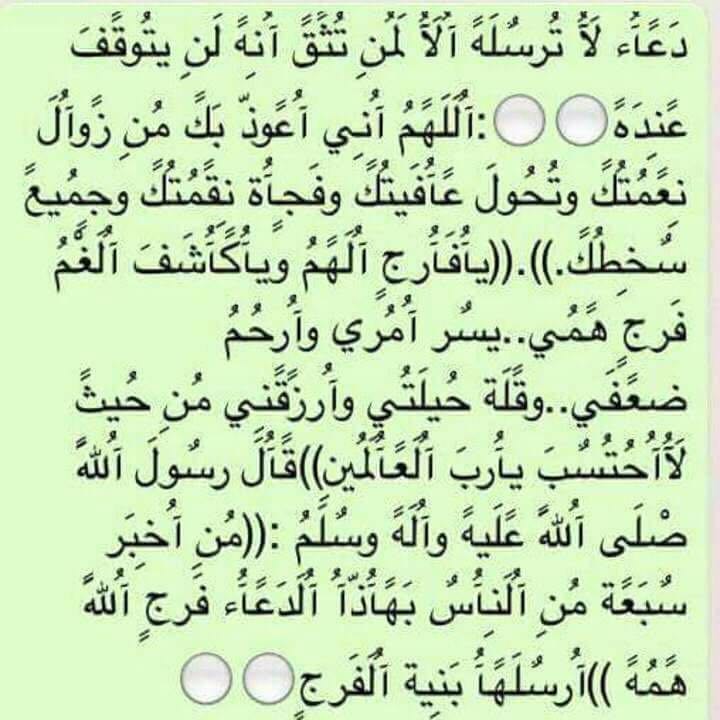 دَعًآء لَآ تُرسُلَهً آلَآ لَمُنِ تُثًقً آنهً لَنِ يتُوقًفَ
عًنِدَهً⚪⚪:آلَلَهًمُ آنِي آعًوذّ بَكً مُنِ زًوآلَ
نعًمُتُكً وتُحُولَ عًآفَيتُكً وفَجآة نقًمُتُكً وجمُيعً
سُخطُكً.)).((يآفَآرج آلَهًمُ ويآكًآشَفَ آلَغًمُ
فَرج هًمُي..يسُر آمُري وآرحُمُ
ضعًفَي..وقًلَة حُيلَتُي وآرزًقًني مُنِ حُيثً
لَآآحُتُسُبَ يآربَ آلَعًآلَمُين))قًآلَ رسُولَ آلَلَهً
صْلَى آلَلَهً عًلَيهً وآلَهً وسُلَمُ :((مُنِ آخبَر
سُبَعًة مُنِ آلَنآسُ بَهًآذّآ آلَدَعًآء فَرج آلَلَهً
هًمُهً ))آرسُلَهًآ بَنية آلَفَرج⚪⚪